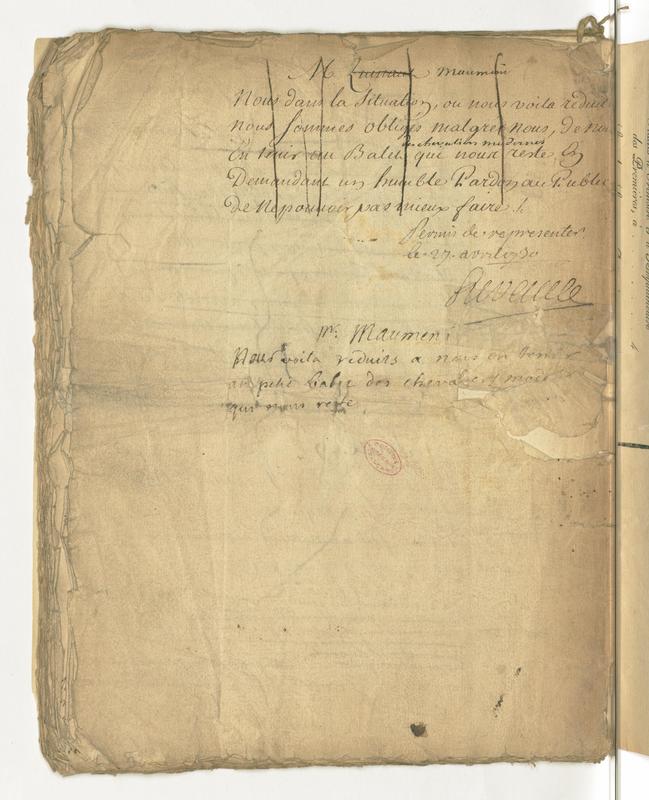 Mr Maumeni
Nous dans la Situation, ou nous voila reduit
nous sommes obligés malgrez nous, de nou
de chevaliers modernes
En tenir au Balet qui nous reste En
Demandant un humble Pardon au Public
de Ne pouvoir pas mieux faire !
Permis de representer
le 27. avril 1730
Mr. Maumeni
Nous voila réduits a nous en tenir
au petit balet des chevaliers mod
qui nous reste